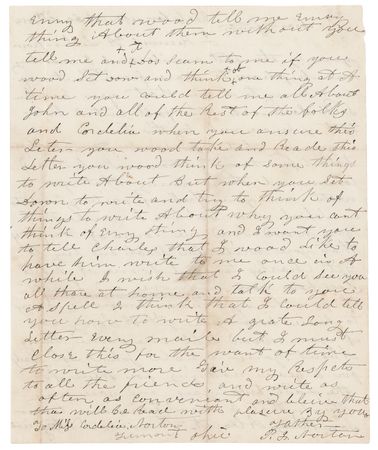 Enny that wood tell me Enny
thing About them without you
tell me and + it + dos seam to me if you
wood Set down and think of one thing at A
time you could tell me all About
John and all of the Rest of the folks
and Cordelia when you ansure this
Leter you wood take and Reade this
Letter you wood think of Some things
to write About But when you Set
down to write and try to think of
things to write About why you cant
think of Enny thing and I want you
to tell Charles that I wood Like to
have him write to me once in A
while I wish that I could See you
all thare at home and talk to you
A Spell I think that I could tell
you how to write A grate Long
Letter Evry maile but I must
Close this for the want of time
to write more Give my Respects
to all the friends and write as
often as convenant and bleive that
this will be Read with plasure By you
To Mis Cordelia Norton Father
Ohio P. L. Norton